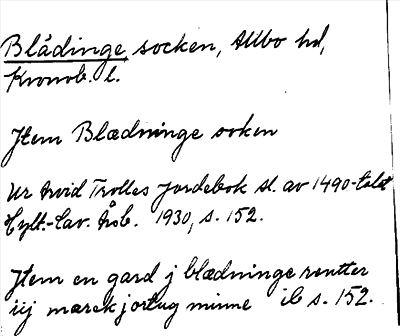 Blädinge socken, Allbo hd,
Kronob. l.
Jtem Blædninge soken
Ur Arvid Trolles Jordebok sl. av 1490-talet
Hylt.-Cav. Årsb. 1930, s. 152.
Jtem en gard j blædninge rentter
iij marck j ortug minne ib s. 152.